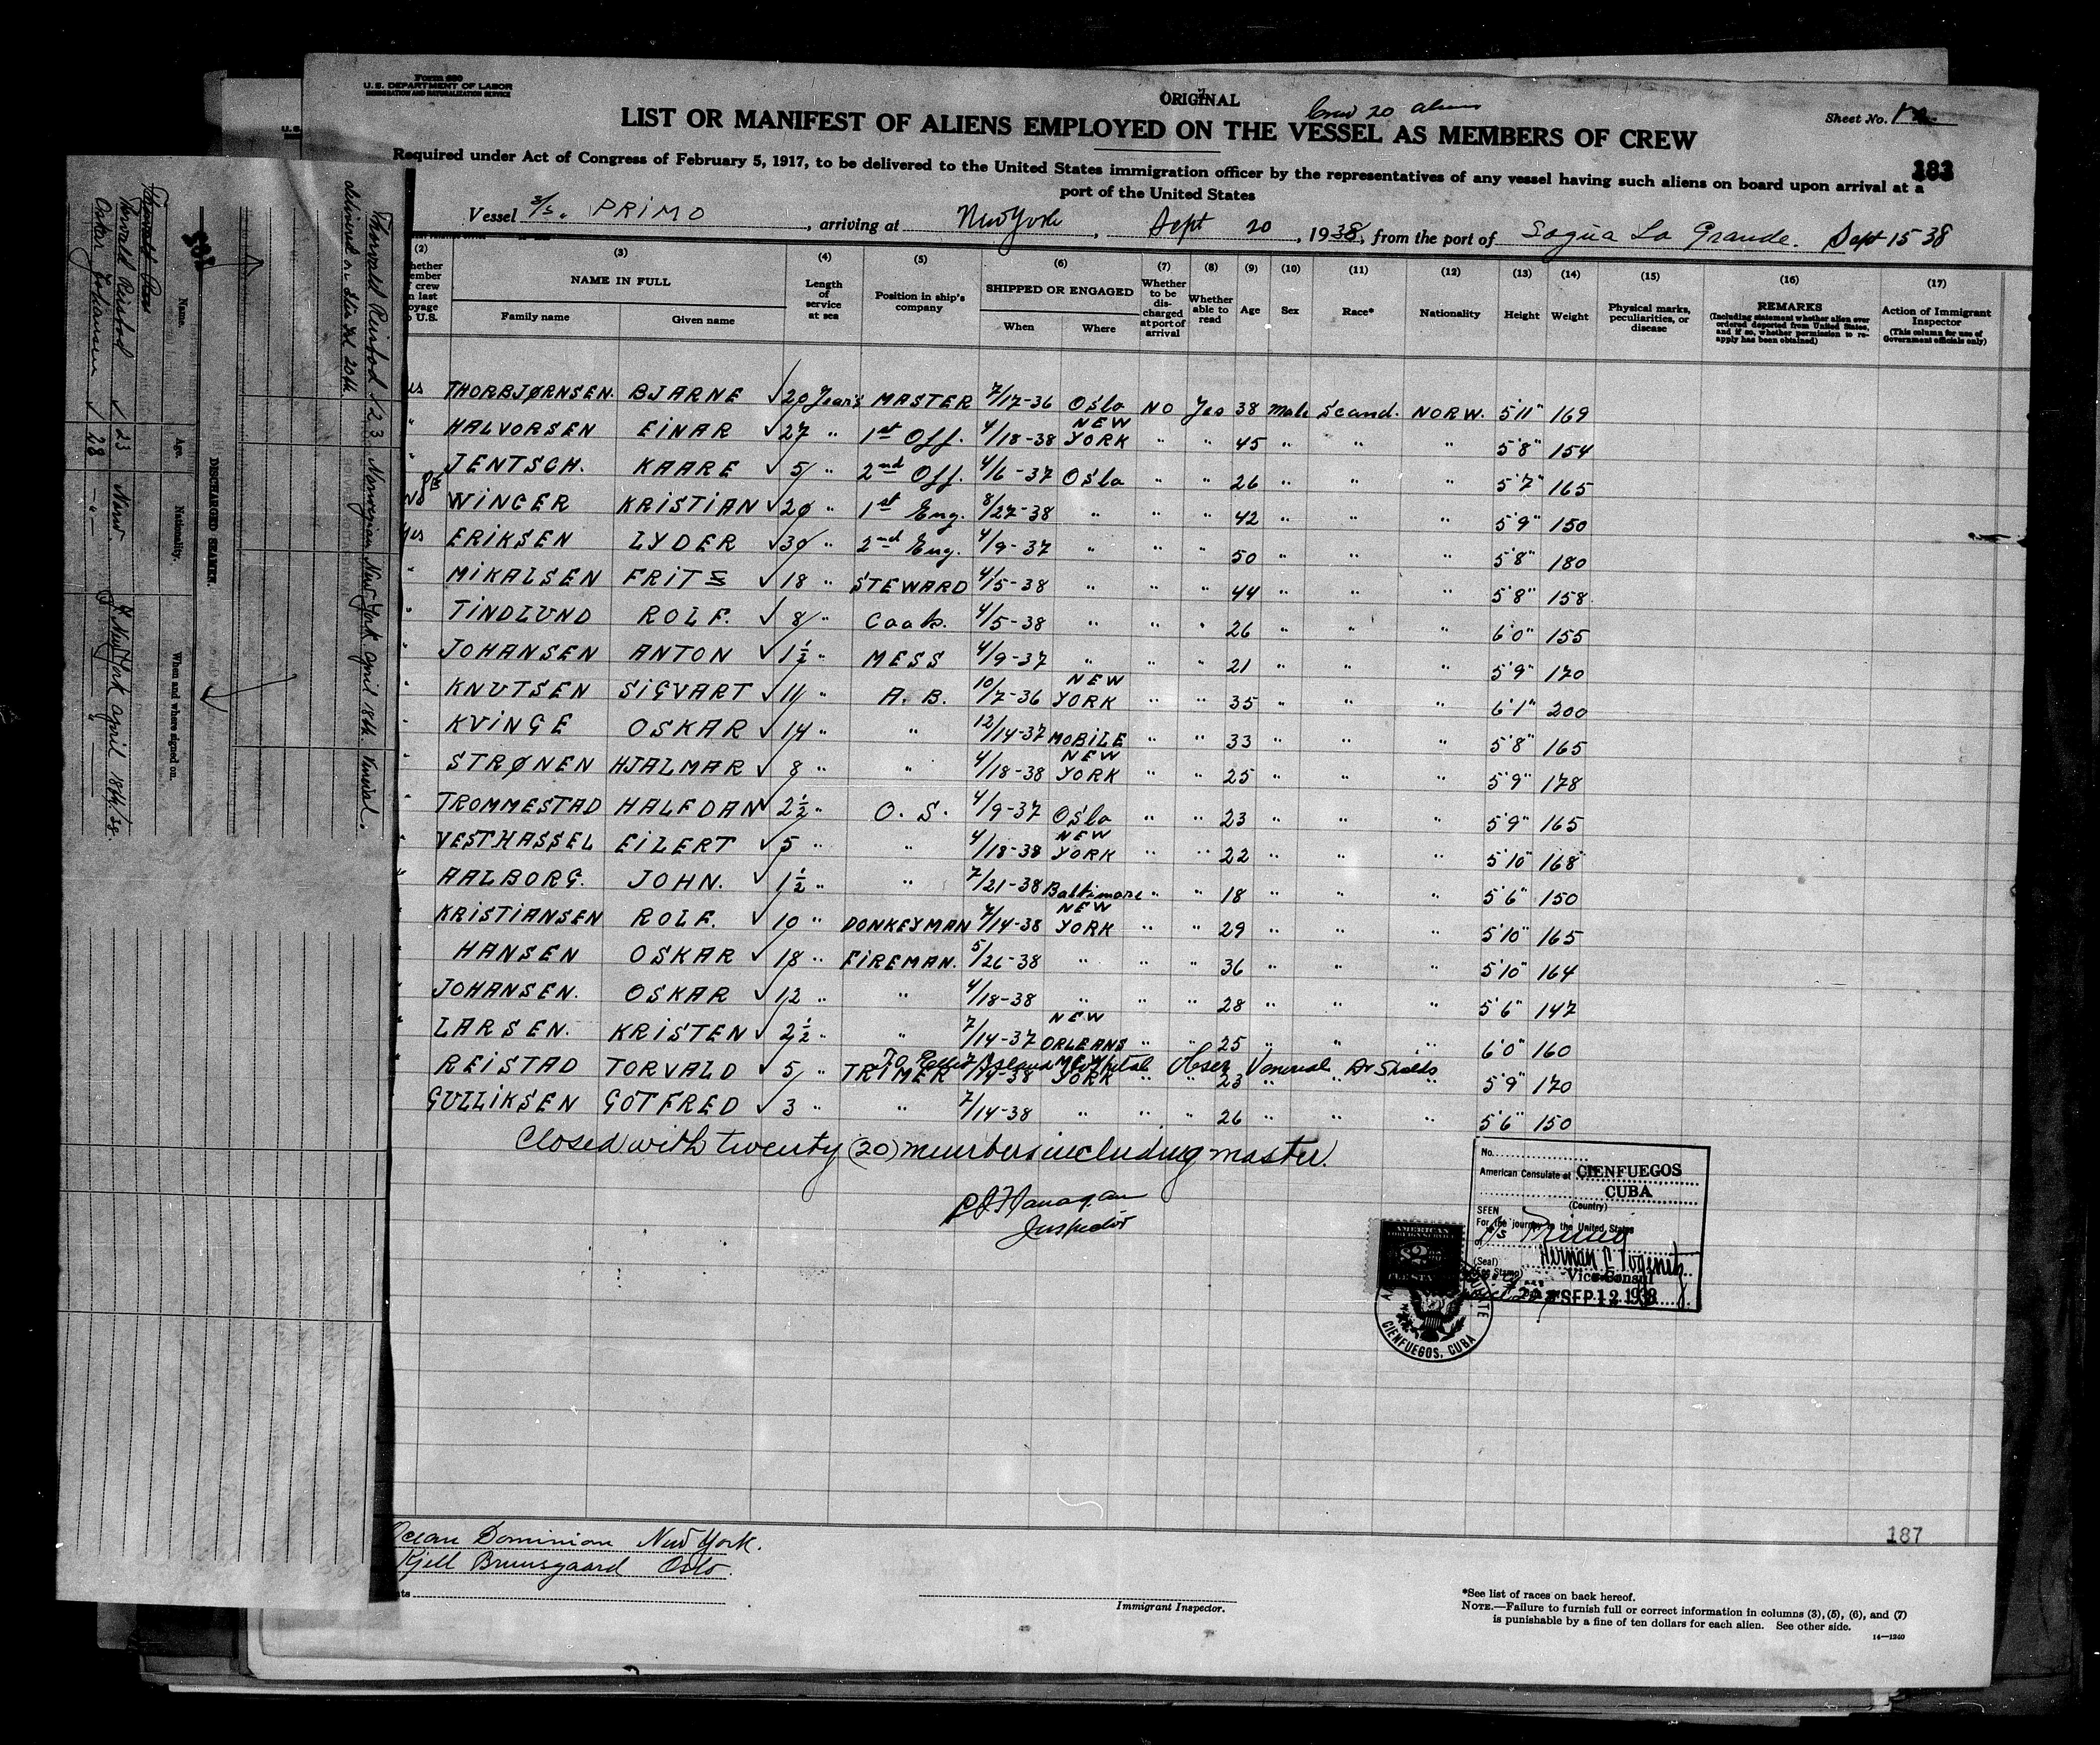 Form 680
U.S. DEPARTMENT OF LABOR
IMMIGRATION AND NATURALIZATION SERVICE
ORIGINAL
Crew 20 aliens
Sheet No. 1
LIST OR MANIFEST OF ALIENS EMPLOYED ON THE VESSEL AS MEMBERS OF CREW
183
Required under Act of Congress of February 5, 1917, to be delivered to the United States immigration officer by the representatives of any vessel having such aliens on board upon arrival at a
port of the United States
Vessel S/S. PRIMO, arriving at New York, Sept 20, 1938, from the port of Sagua La Grande. Sept 15 38
(2) (3) (4) (5) (6) (7) (8) (9) (10) (11) (12) (13) (14) (15) (16) (17)
NAME IN FULL
Family name Given name
Length of service at sea
Position in ship's company
SHIPPED OR ENGAGED
When Where
Whether to be discharged at port of arrival
Whether able to read
Age Sex Race* Nationality Height Weight
Physical marks, peculiarities, or disease
REMARKS
(Including statement whether alien ever ordered deported from United States, and if so, whether permission to reapply has been obtained)
Action of Immigrant Inspector
(This column for use of Government officials only)
THORBJØRNSEN. BJARNE √ 20 Year's MASTER 7/17-36 Oslo NO Yes 38 Male Scand. NORW. 5'11" 169
" HALVORSEN EINAR √ 27 " 1st Off. 4/18-38 NEW YORK " " 45 " " " 5'8" 154
" JENTSCH. KAARE √ 5 " 2nd Off. 4/6-37 Oslo " " 26 " " " 5'7" 165
No WINGER KRISTIAN √ 20 " 1st Eng. 8/27-38 " " " 42 " " " 5'9" 150
Yes ERIKSEN LYDER √ 30 " 2nd Eng. 4/9-37 " " " 50 " " " 5'8" 180
" MIKALSEN FRITS √ 18 " STEWARD 4/5-38 " " " 44 " " " 5'8" 158
" TINDLUND ROLF. √ 8 " Cook. 4/5-38 " " " 26 " " " 6'0" 155
" JOHANSEN ANTON √ 1½ " MESS 4/9-37 " " " 21 " " " 5'9" 170
" KNUTSEN SIGVART √ 11 " A. B. 10/7-36 NEW YORK " " 35 " " " 6'1" 200
" KVINGE OSKAR √ 14 " " 12/14-37 MOBILE " " 33 " " " 5'8" 165
" STRØNEN HJALMAR √ 8 " " 4/18-38 NEW YORK " " 25 " " " 5'9" 178
" TROMMESTAD HALFDAN √ 2½ " O. S. 4/9-37 Oslo " " 23 " " " 5'9" 165
" VESTHASSEL EILERT √ 5 " " 4/18-38 NEW YORK " " 22 " " " 5'10" 168
" AALBORG. JOHN. √ 1½ " " 7/21-38 Baltimore " " 18 " " " 5'6" 150
" KRISTIANSEN ROLF. √ 10 " DONKEYMAN 7/14-38 NEW YORK " " 29 " " " 5'10" 165
" HANSEN OSKAR √ 18 " FIREMAN. 5/26-38 " " " 36 " " " 5'10" 164
" JOHANSEN. OSKAR √ 12 " " 4/18-38 " " " 28 " " " 5'6" 147
" LARSEN. KRISTEN √ 2½ " " 7/14-37 NEW ORLEANS " " 25 " " " 6'0" 160
To Ellis Island Hospital Obser Venereal Dr Shields
" REISTAD TORVALD √ 5 " TRIMER 7/14-38 NEW YORK " " 23 " " " 5'9" 170
GULLIKSEN GOTFRED √ 3 " " 7/14-38 " " " 26 " " " 5'6" 150
Closed with twenty (20) members including master.
Inspector
No.
American Consulate at CIENFUEGOS
CUBA
(Country)
SEEN
For the journey to the United States
of S/S Primo
(Seal)
(Fee Stamp)
Vice Consul
SEP 12 1938
CIENFUEGOS, CUBA
Ocean Dominion New York.
Kjell Bruusgaard Oslo.
187
Immigrant Inspector.
*See list of races on back hereof.
NOTE.—Failure to furnish full or correct information in columns (3), (5), (6), and (7)
is punishable by a fine of ten dollars for each alien. See other side.
14—1240
DISCHARGED SEAMEN.
Name. Age. Nationality. When and where signed on.
Thorvald Reistad √ 23 Norw. New York april 18th/38.
Oskar Johansen √ 28 — " —
Thorvald Reistad √ 23 Norwegian New York april 18th.